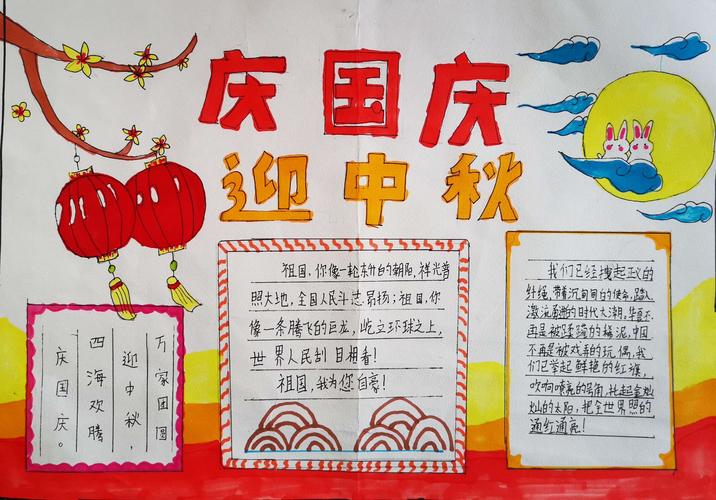 庆国庆
迎中秋
万家团圆
迎中秋，
四海欢腾
庆国庆。
祖国，你像一轮东升的朝阳，祥光普
照大地，全国人民斗志昂扬；祖国，你
像一条腾飞的巨龙，屹立环球之上，
世界人民刮目相看！
祖国，我为您自豪！
我们已经拽起正义的
纤绳，带着沉甸甸的使命，踏入
激流勇进的时代大潮，华夏不
再是被蹂躏的稀泥，中国
不再是被戏弄的玩偶，我
们已举起鲜艳的红旗，
吹响嘹亮的号角，托起金灿
灿的太阳，把全世界照的
通红通亮！